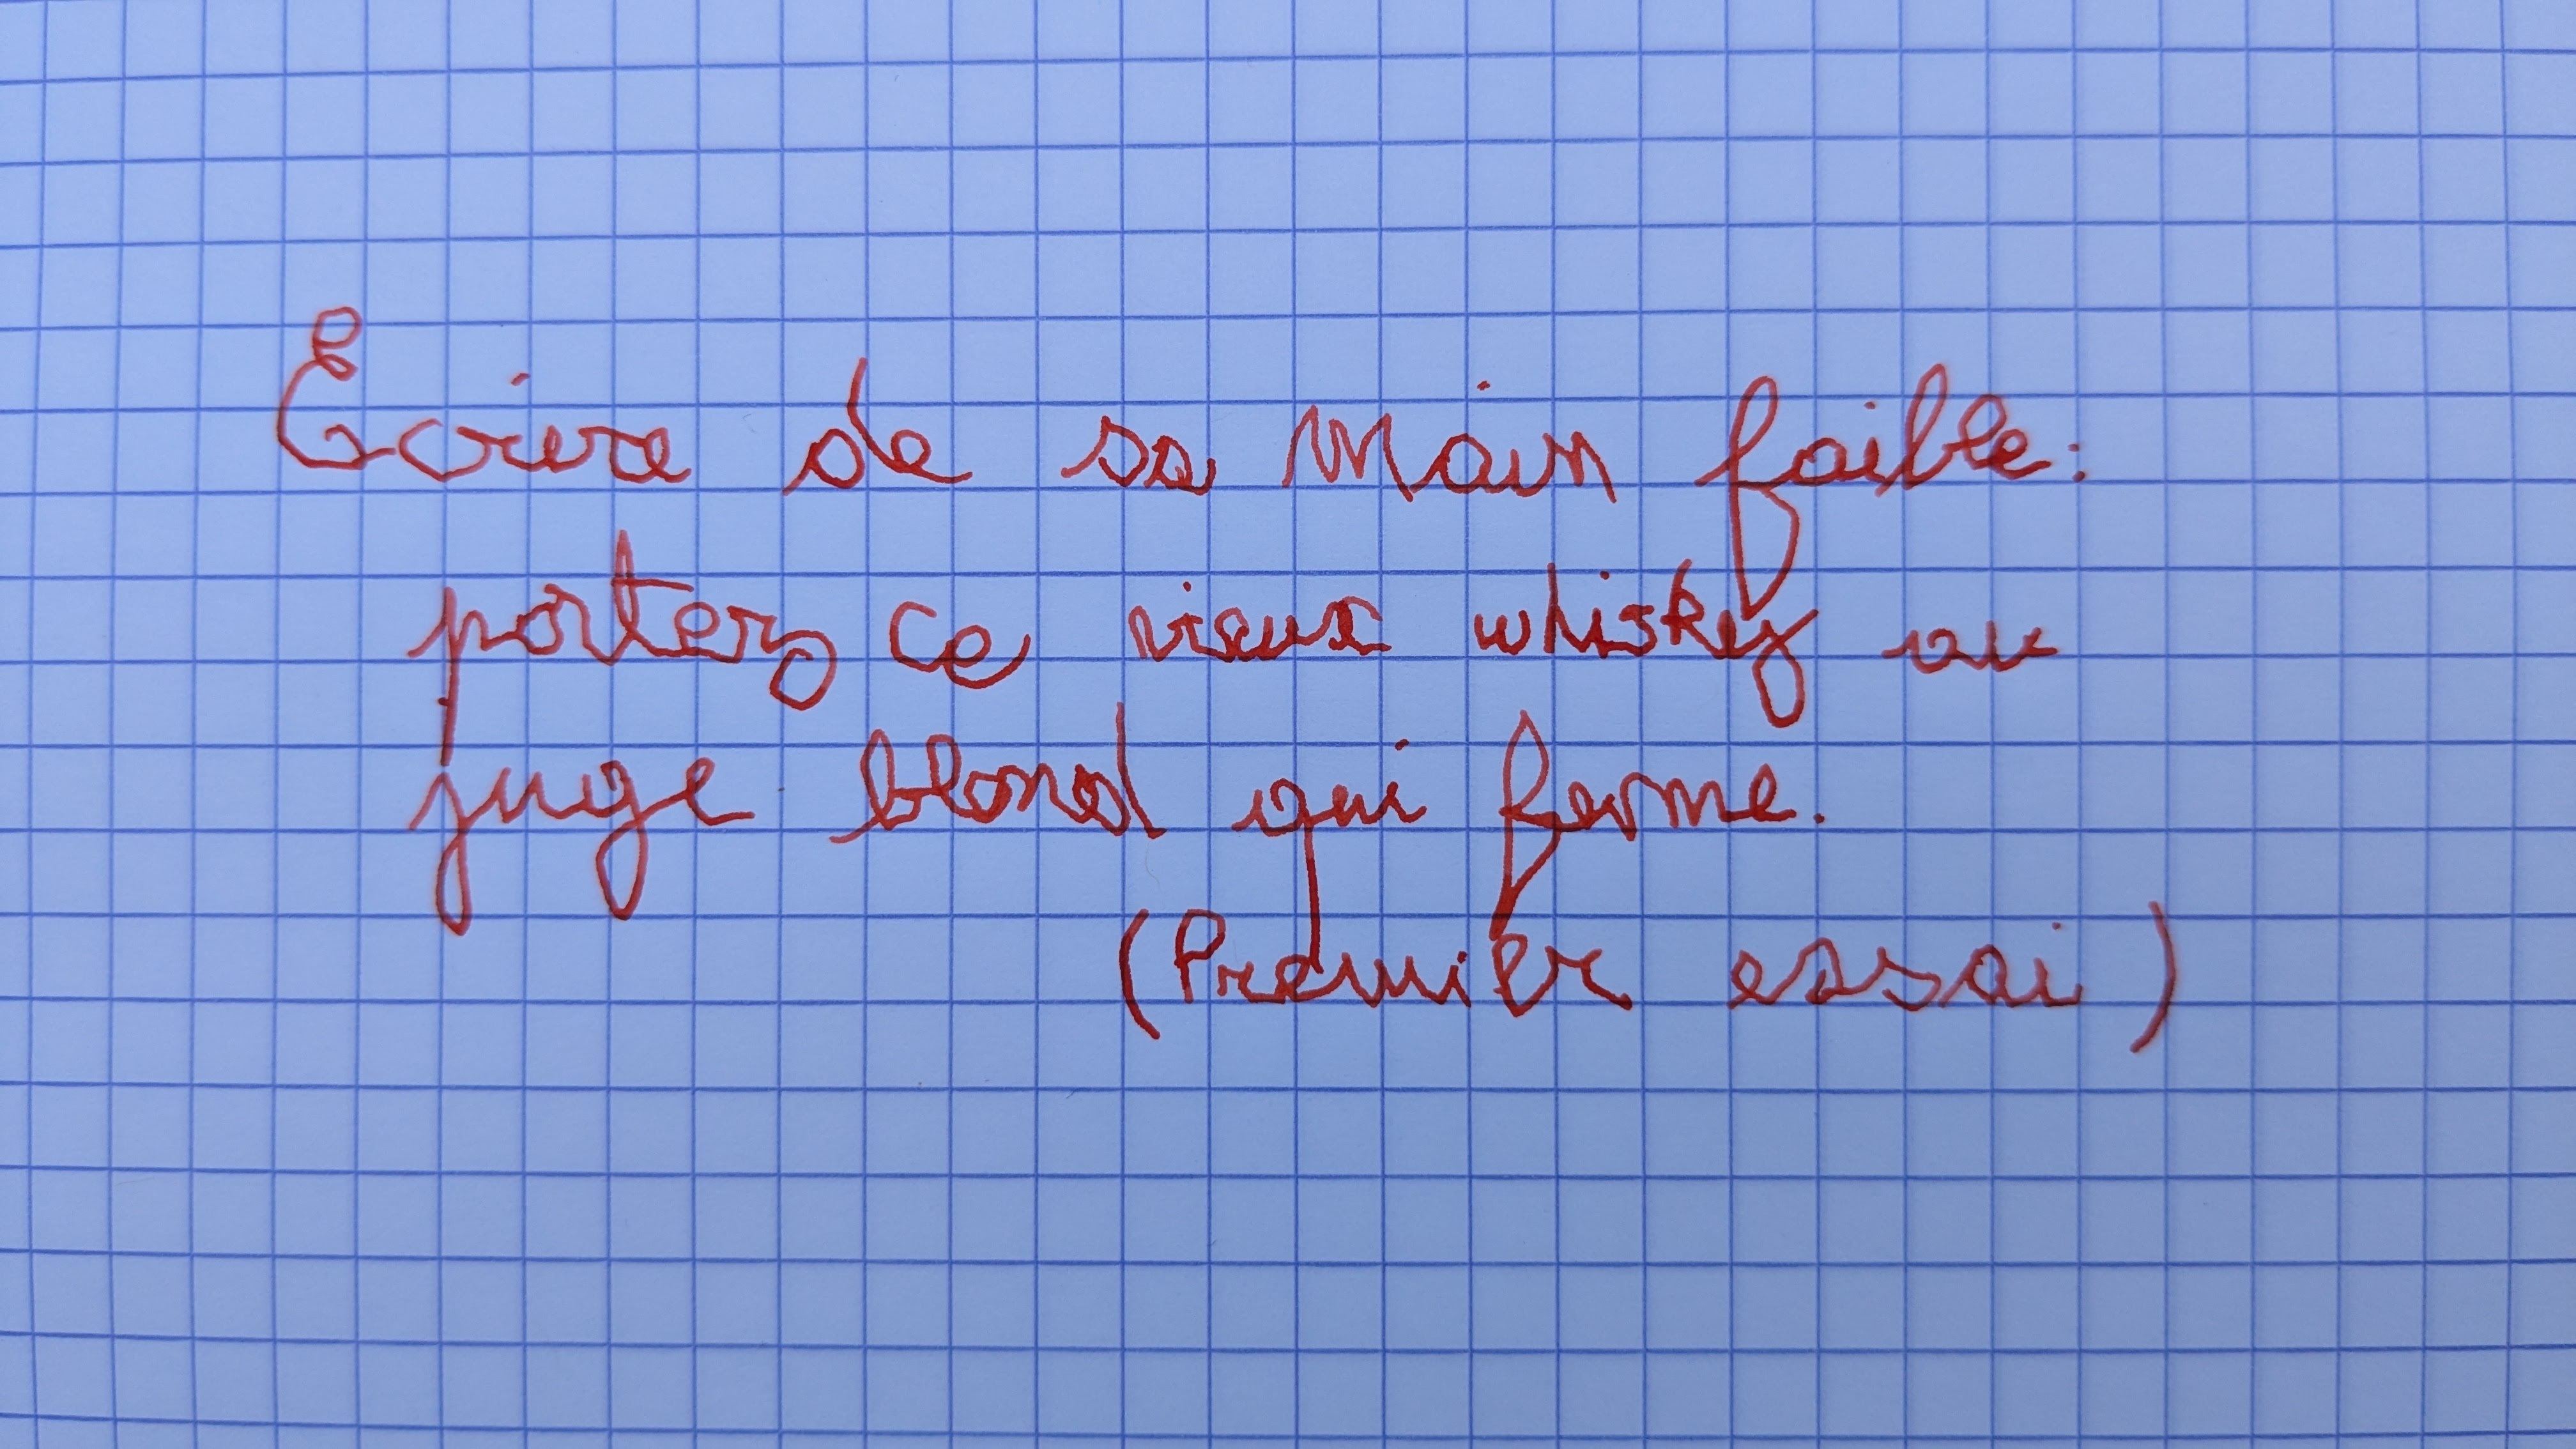 Ecrire de sa main faible:
portez ce vieux whiskey au
juge blond qui ferme.
(Premier essai)